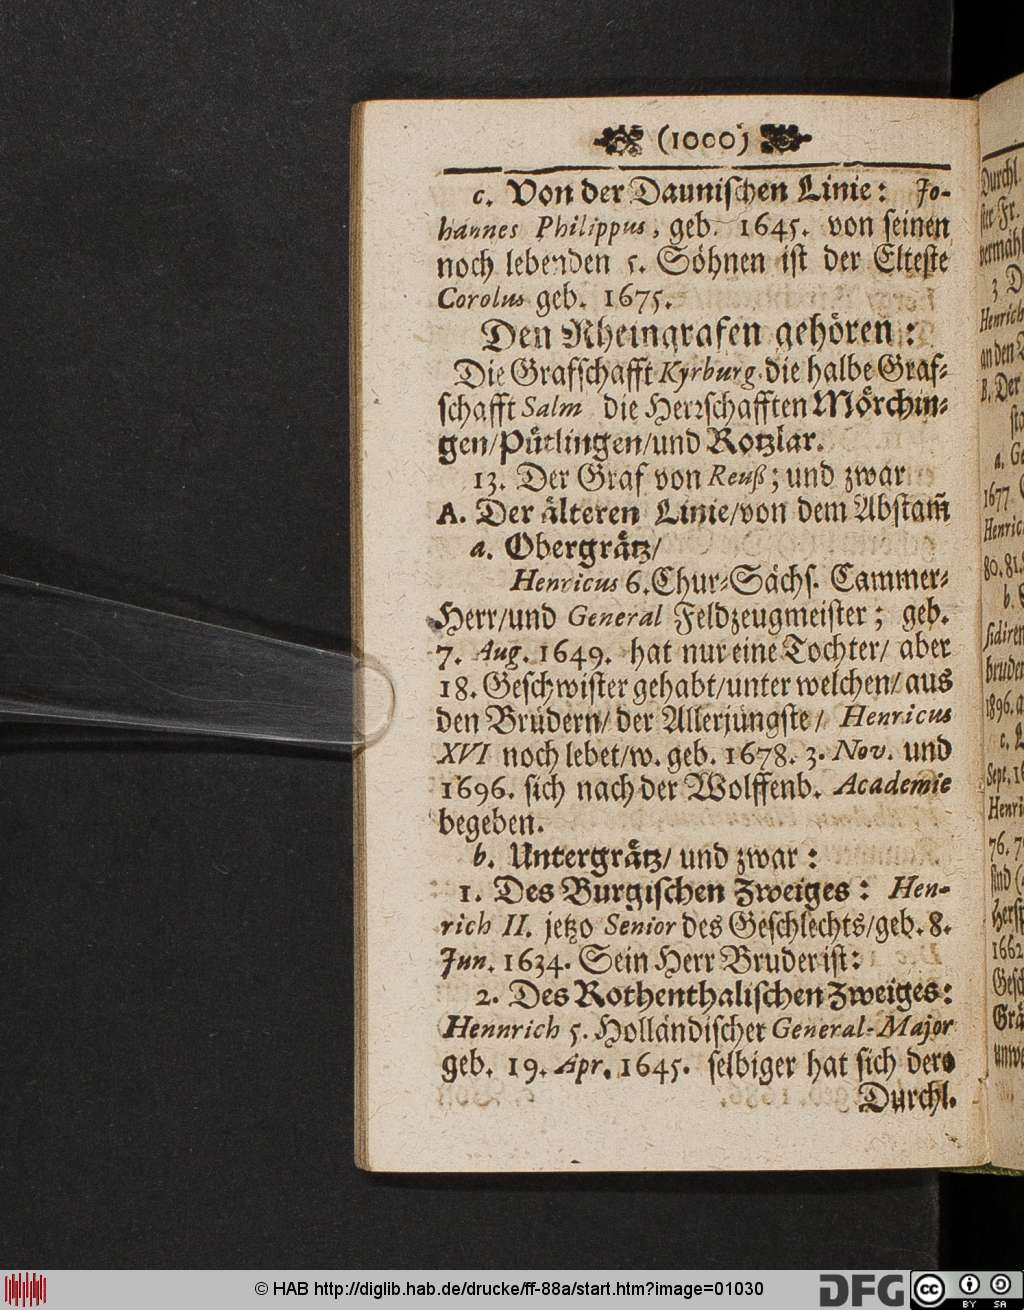 (1000)
c. Von der Daunischen Linie: Jo-
hannes Philippus, geb. 1645. von seinen
noch lebenden 5. Söhnen ist der Elteste
Corolus geb. 1675.
Den Rheingrafen gehören:
Die Grafschafft Kyrburg die halbe Graf-
schafft Salm die Herrschafften Mörchin-
gen/Pütlingen/und Rotzlar.
13. Der Graf von Reuß; und zwar
A. Der älteren Linie/von dem Abstam̃
a. Obergrätz/
Henricus 6. Chur-Sächs. Cammer-
Herr/und General Feldzeugmeister; geb.
7. Aug. 1649. hat nur eine Tochter/ aber
18. Geschwister gehabt/unter welchen/aus
den Brüdern/ der Allerjüngste/ Henricus
XVI noch lebet/w. geb. 1678. 3. Nov. und
1696. sich nach der Wolffenb. Academie
begeben.
b. Untergrätz/ und zwar:
1. Des Burgischen Zweiges: Hen-
rich II. jetzo Senior des Geschlechts/geb. 8.
Jun. 1634. Sein Herr Bruder ist:
2. Des Rothenthalischen Zweiges:
Hennrich 5. Holländischer General-Major
geb. 19. Apr. 1645. selbiger hat sich dero
Durchl.
Durchl.
3. D
Henrich
an den
B. Der
a. Ge
1677
Henric
80. 81.
b.
bruder
1896.
c.
Sept. 16
Henri
76. 7
sind
1662
Gesch
Grä
© HAB http://diglib.hab.de/drucke/ff-88a/start.htm?image=01030
DFG
cc
BY SA